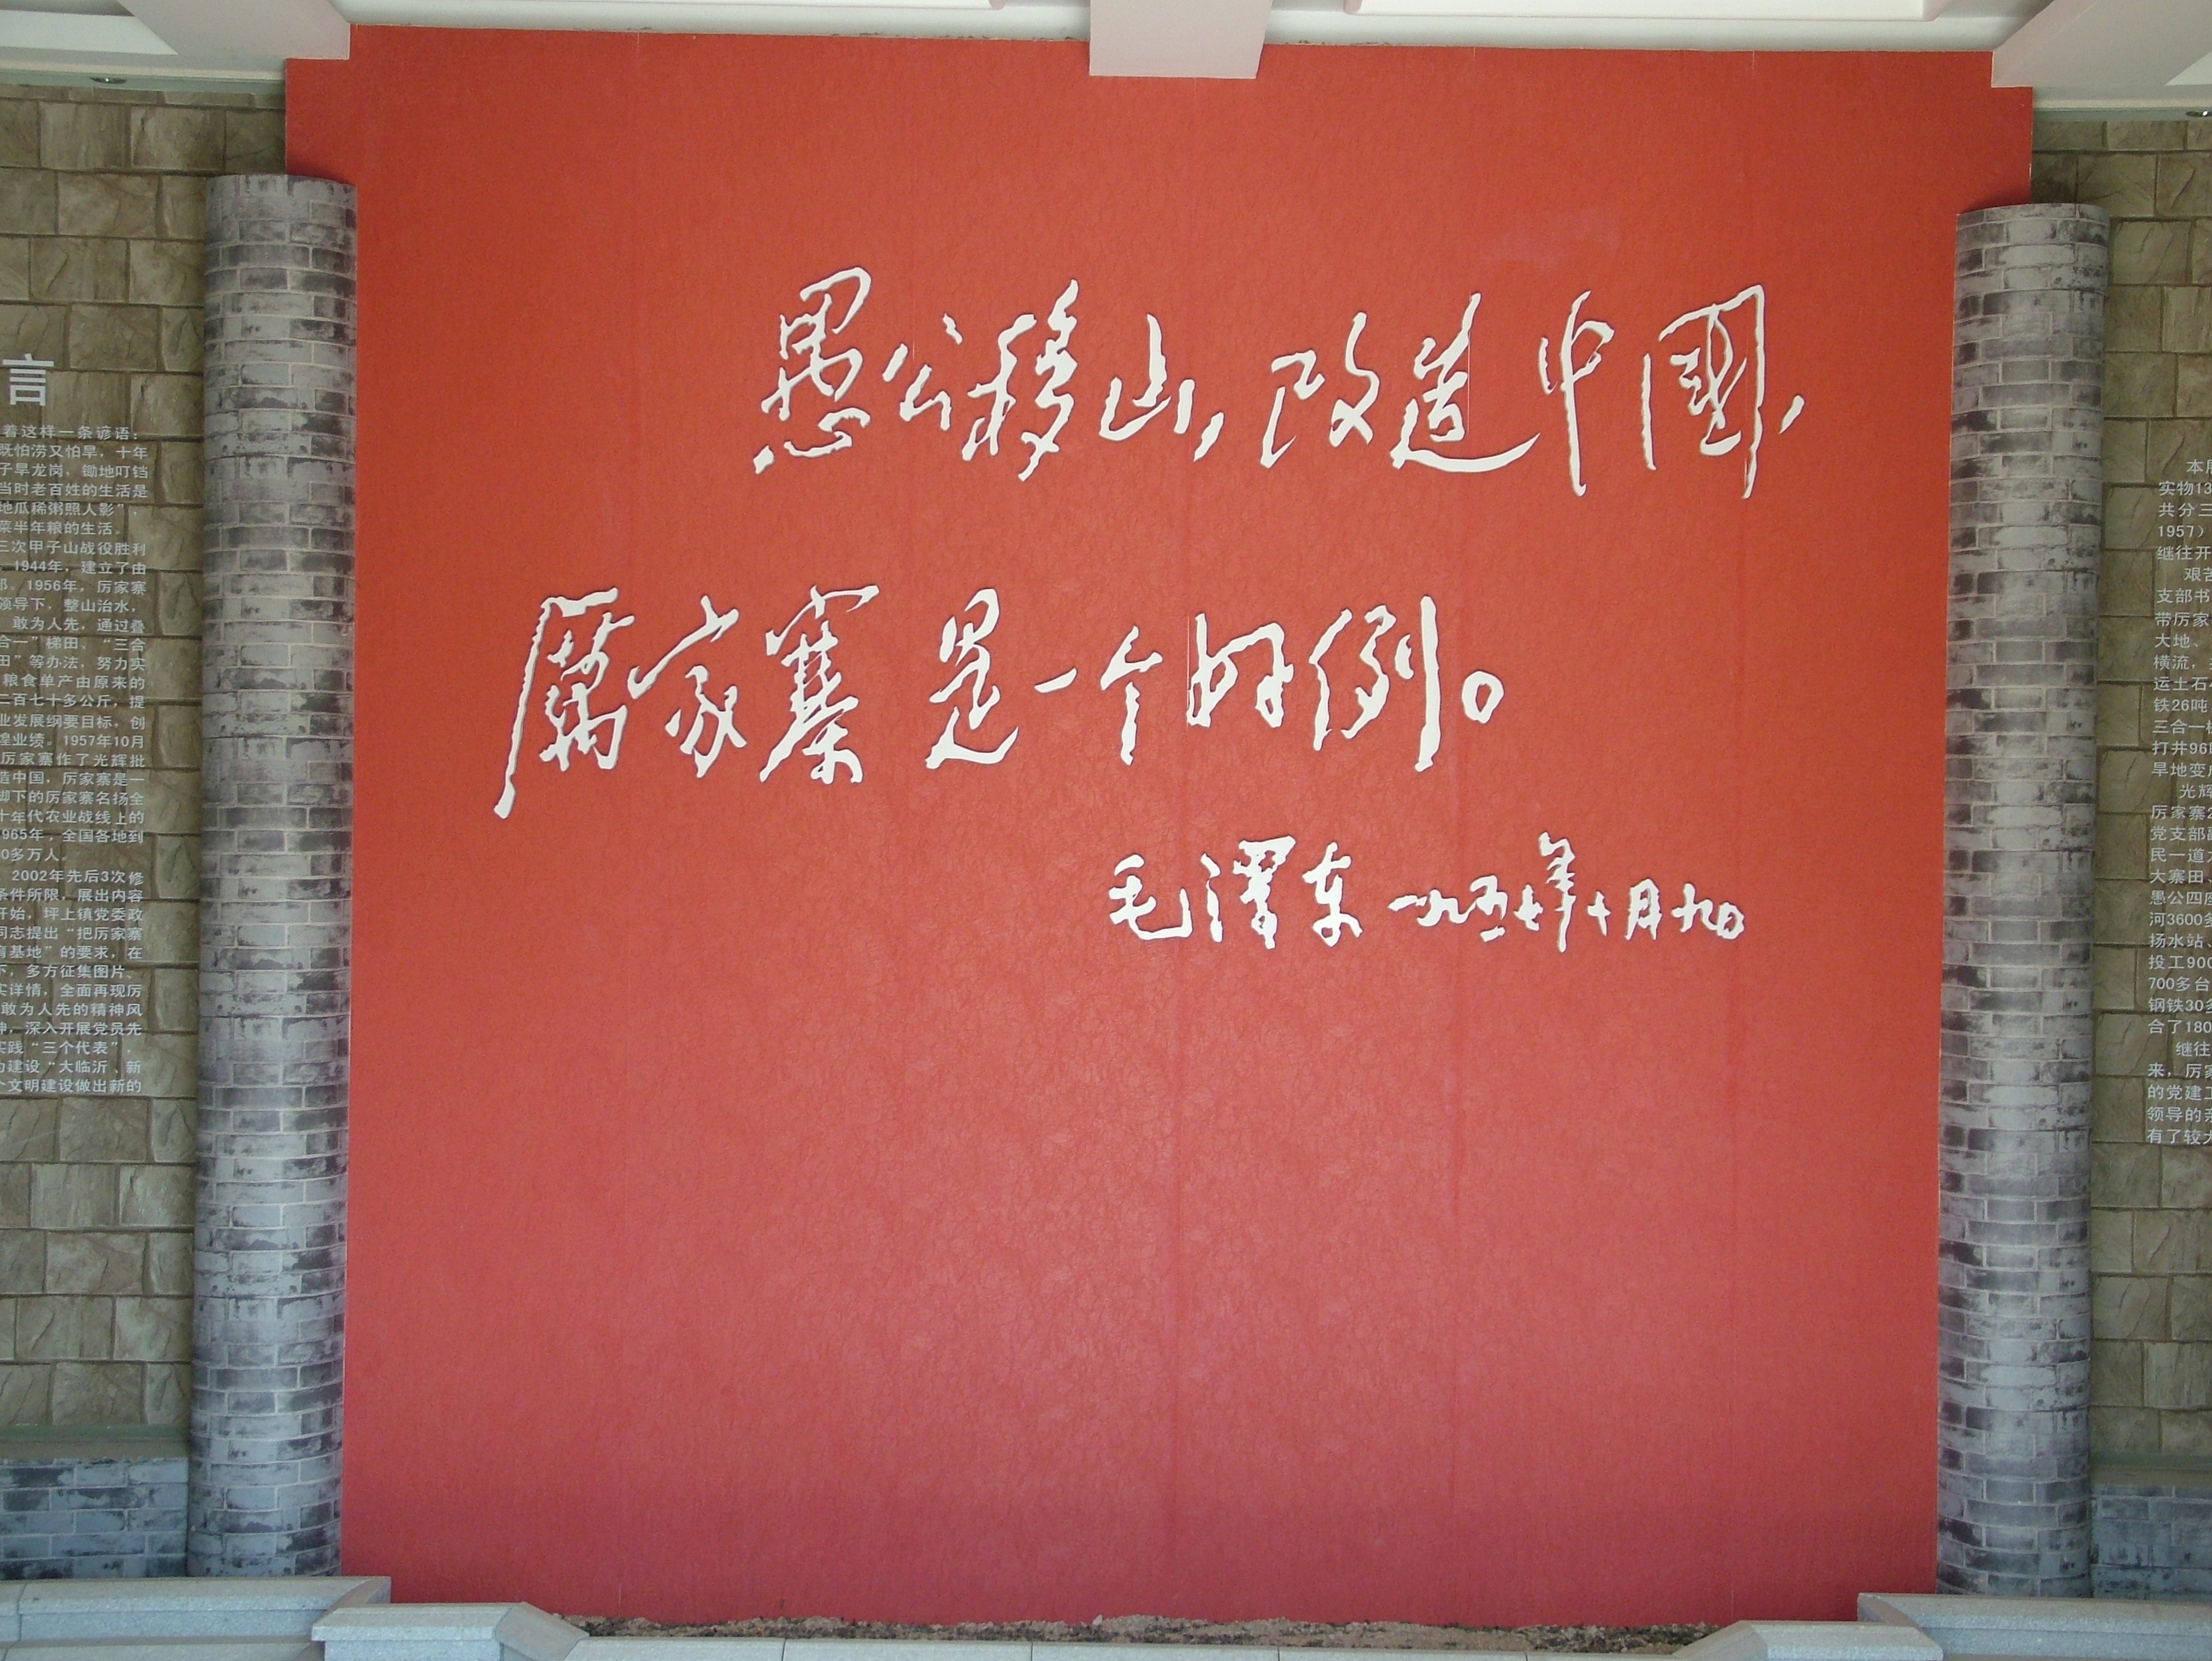 愚公移山，改造中國，
厲家寨是一个好例。
毛澤东 一九五七年十月九日
言
着这样一条谚语：
既怕涝又怕旱，十年
子旱龙岗，锄地叮铛
当时老百姓的生活是
地瓜稀粥照人影”，
菜半年粮的生活。
三次甲子山战役胜利
1944年，建立了由
部。1956年，厉家寨
领导下，整山治水，
敢为人先，通过叠
合一”梯田、“三合
田”等办法，努力实
粮食单产由原来的
二百七十多公斤，提
业发展纲要目标，创
煌业绩。1957年10月
厉家寨作了光辉批
造中国，厉家寨是一
脚下的厉家寨名扬全
十年代农业战线上的
965年，全国各地到
0多万人。
2002年先后3次修
条件所限，展出内容
开始，坪上镇党委政
同志提出“把厉家寨
育基地”的要求，在
下，多方征集图片、
实详情，全面再现厉
敢为人先的精神风
神，深入开展党员先
实践“三个代表”，
为建设“大临沂、新
个文明建设做出新的
本
实物13
共分三
1957）
继往开
艰苦
支部书
带厉家
大地、
横流，
运土石
铁26吨
三合一
打井96
旱地变
光辉
厉家寨
党支部
民一道
大寨田、
愚公四
河3600
扬水站、
投工900
700多台
钢铁30
合了180
继往
来，厉
的党建
领导的
有了较大